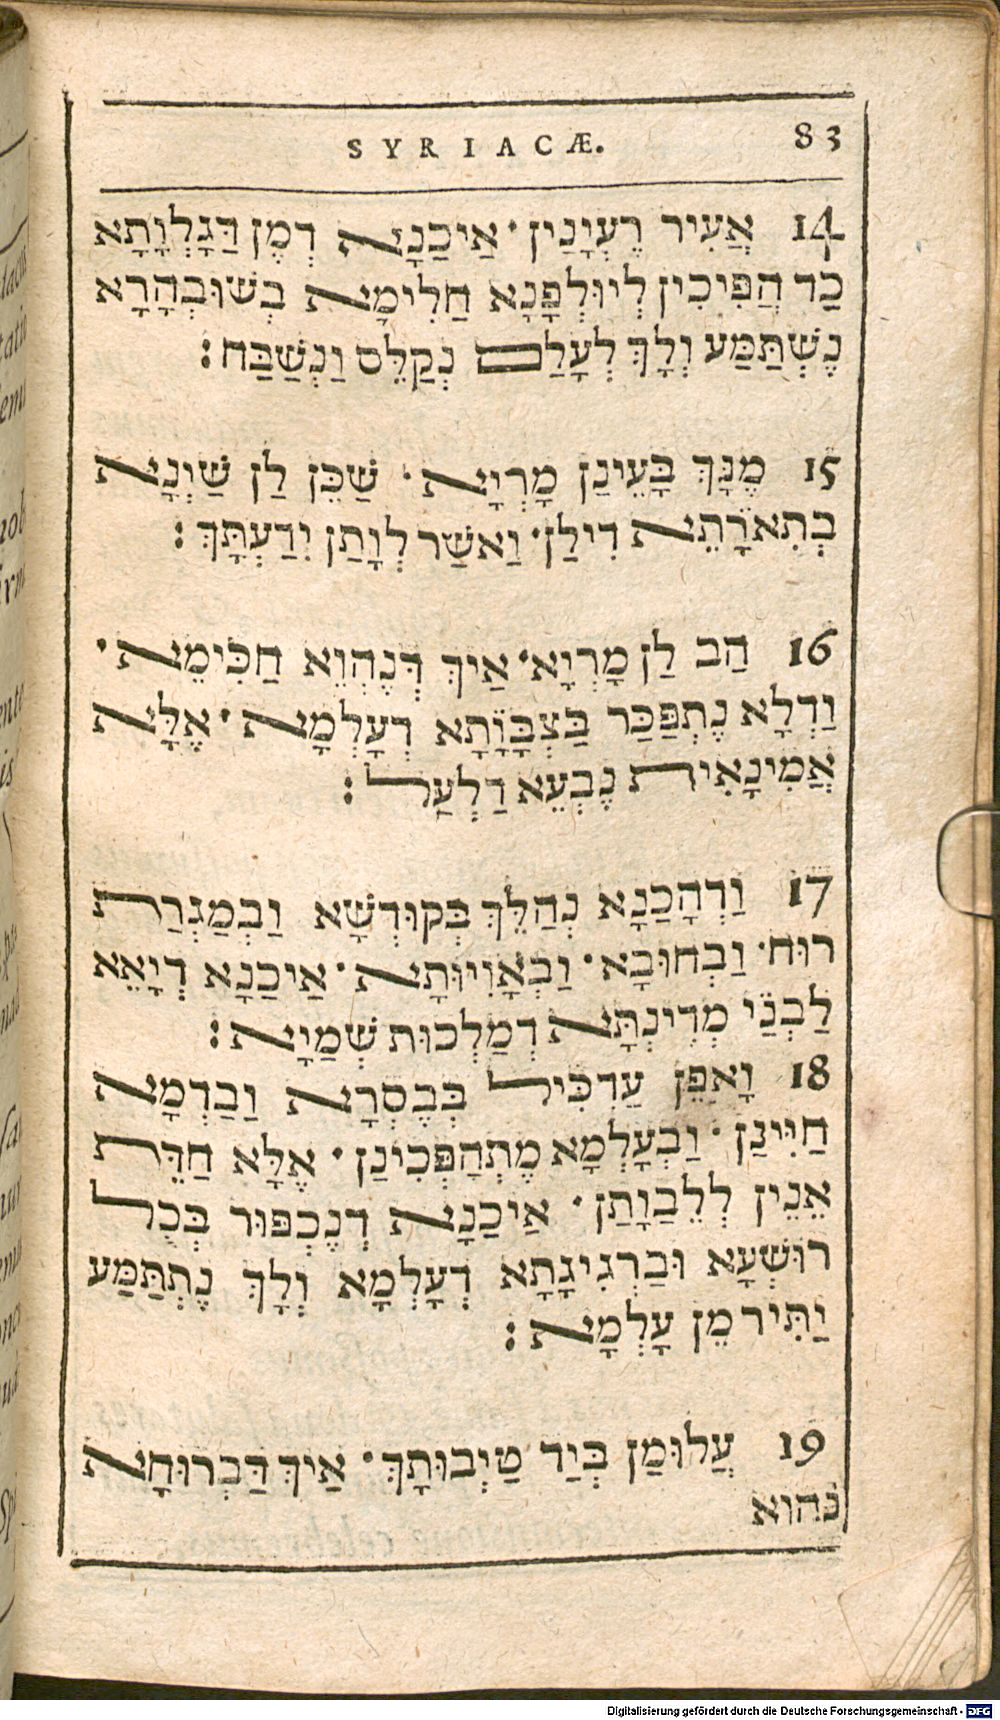 SYRIACÆ. 83
14 אֲעִיר רֶעְיָנַין · אַיכַנָא דְמֶן דַּגָלְוָתָא
כַד הֲפִיכִין לְיוּלְפָנָא חַלִימָא בְשׁוּבְהָרָא
נֶשְׁתַּמַּע וְלָךְ לְעָלַם נְקַלֵּס וַנְשַׁבַּח :
15 מֶנָּךְ בָּעֵינַן מָרְיָא · שַׁכֵּן לַן שַׁוְנָא
בְתִארָתֵא דִילַן · וַאשַׁר לְוָתַן יִדַעְתָּךְ :
16 הַב לַן מָרְיָא · אַיךְ דְּנֶהְוֵא חַכִּימֵא ·
וַדְלָא נֶתְפַּכַּר בַּצְבָּוָתָא דְעָלְמָא · אֶלָּא
אֲמִינָאִית נֶבְעֵא דַלְעֵל :
17 וַדְהָכַנָא נְהַלֵּךְ בְּקוּדְשָׁא וַבְמַגְרַת
רוּח · וַבְחוּבָא · וַבְאָוְיוּתָא · אַיכַנָא דְיָאֵא
לַבְנַי מְדִינְתָּא דְמַלְכוּת שְׁמַיָא :
18 וָאפֵּן עַדכִּיל בְּבֶסְרָא וַבַדְמָא
חַיִּינַן · וַבְעָלְמָא מֶתְהַפְּכִינַן · אֶלָּא חַדֶּת
אֵנֵין לְלֵבַוָתַן · אַיכַנָא דְנֶכְפּוּר בְּכֻל
רוּשְׁעָא וּבַרְגִיגָתָא דְעָלְמָא וְלָךְ נֶתְּתַּמַּע
יַתִּיר מֵן עָלְמָא :
19 עֲלוּמַן בְּיַד טַיְבוּתָךְ · אַיךְ דַּבְרוּחָא
נהוא
Digitalisierung gefördert durch die Deutsche Forschungsgemeinschaft - DFG